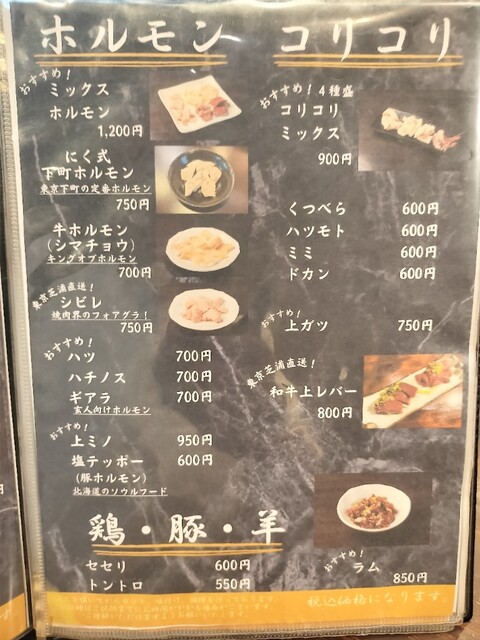 ホルモン
おすすめ!
ミックス
ホルモン
1,200円
にく式
下町ホルモン
東京下町の定番ホルモン
750円
牛ホルモン
(シマチョウ)
キングオブホルモン
700円
東京芝浦直送!
シビレ
焼肉界のフォアグラ!
750円
おすすめ!
ハツ 700円
ハチノス 700円
ギアラ 700円
玄人向けホルモン
おすすめ!
上ミノ 950円
塩テッポー 600円
(豚ホルモン)
北海道のソウルフード
コリコリ
おすすめ!4種盛
コリコリ
ミックス
900円
くつべら 600円
ハツモト 600円
ミミ 600円
ドカン 600円
おすすめ!
上ガツ 750円
東京芝浦直送!
和牛上レバー
800円
鶏・豚・羊
セセリ 600円
トントロ 550円
おすすめ!
ラム
850円
税込価格になります。